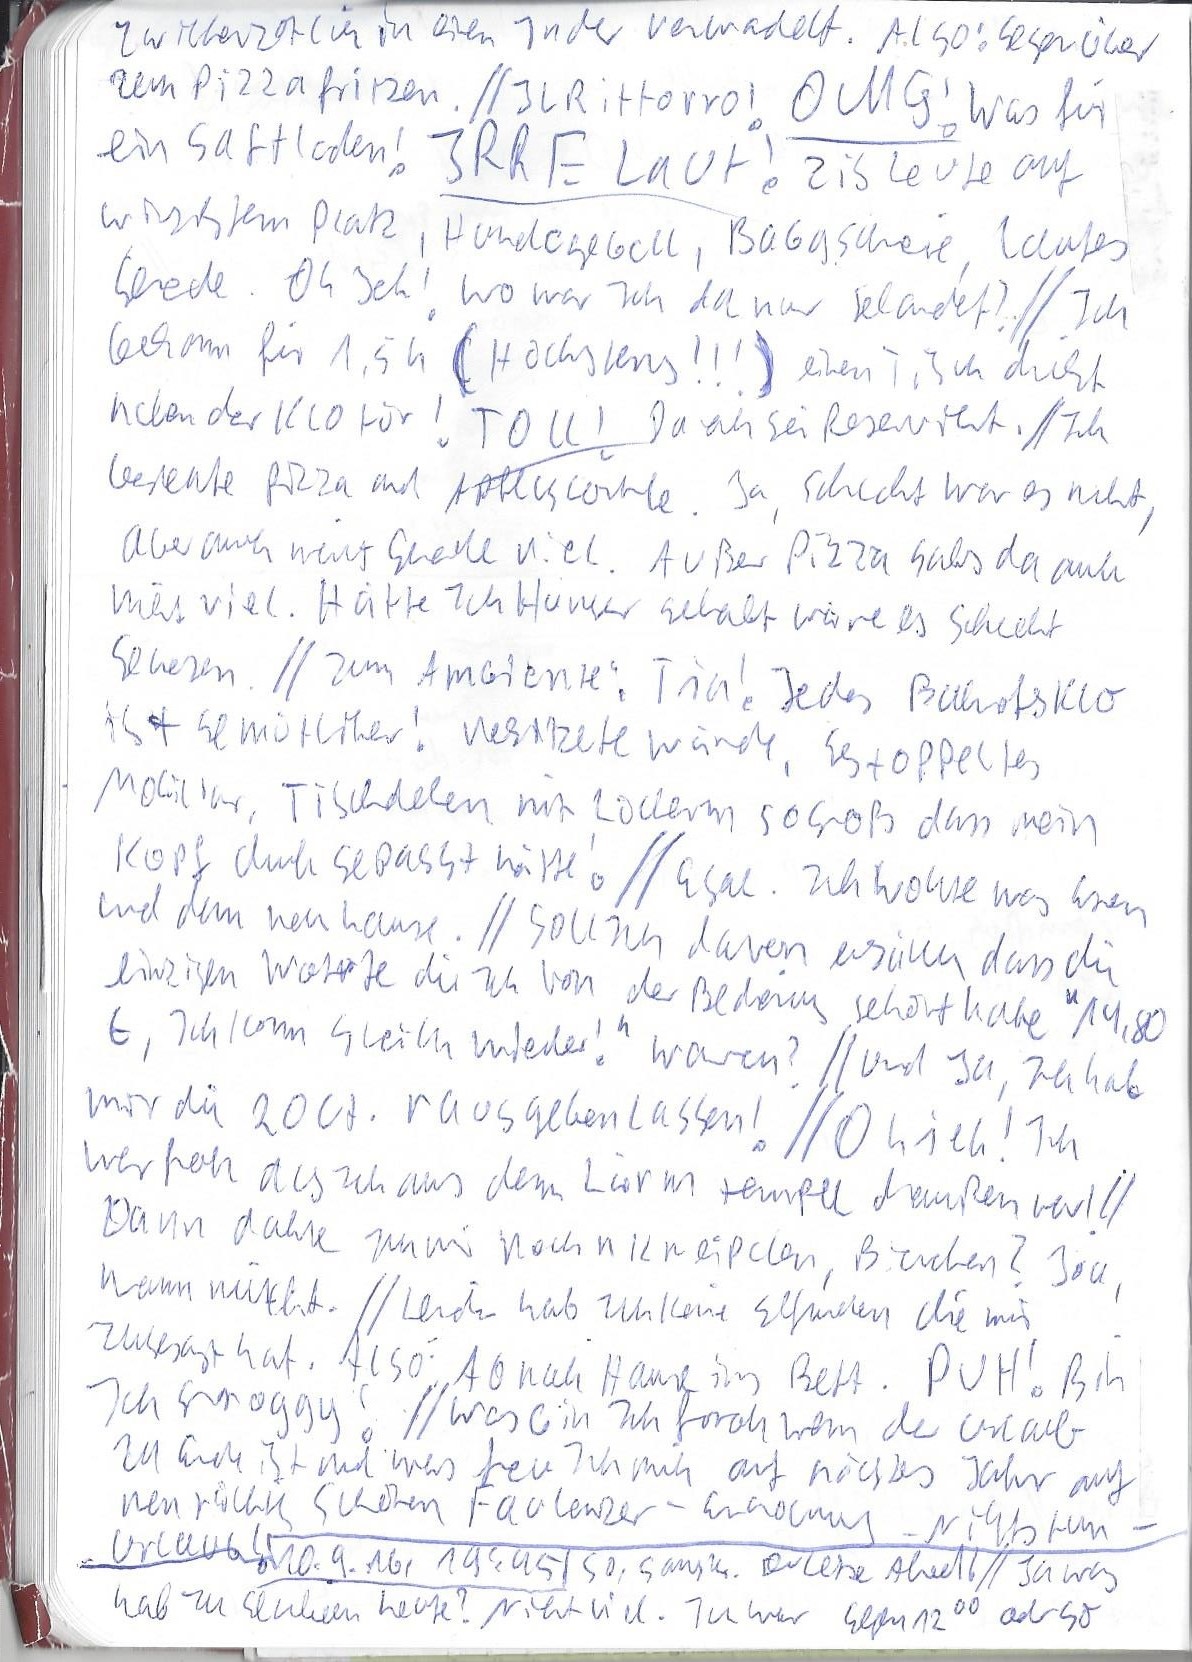 zwischenzeitlich in einen Inder verwandelt. Also: Gegenüber
zum Pizzafritzen. // Il Rittorro! OMG! Was für
ein Saftladen! IRRE Laut! Leute auf
winzigstem Platz, Hundegebell, Babygschreie, lautes
Gerede. Oh Jeh! Wo war ich da nur gelandet? // Ich
bekam für 1,5 h (Höchstens!!!) einen Tisch direkt
neben der Klotür! TOLL! Danach sei Reserviert. // Ich
bestellte Pizza und Apfelschorle. Ja, schlecht war es nicht,
aber auch nicht gerade viel. Außer Pizza gabs da auch
nicht viel. Hätte ich Hunger gehabt wäre es schlecht
gewesen. // Zum Ambiente: Tja! Jedes Bahnhofsklo
ist gemütlicher! Verspritzte Wände, gestoppeltes
Mobiliar, Tischdecken mit Löchern so groß dass mein
Kopf durch gepasst hätte! // Egal. Ich wollte was essen
und dann nach hause. // Soll ich davon erzählen dass die
einzigen Worte die ich von der Bedienung gehört habe "14,80
€, Ich komm gleich wieder!" waren? // Und Ja, ich hab
mir die 20 Ct. rausgeben lassen! // Oh jeh! Ich
war froh als ich aus dem Lärm tempel draußen war! //
Dann dachte ich mir noch n Kneipchen, Bierchen? Joa,
warum nicht. // Leider hab ich keine gefunden die mir
zugesagt hat. Also: Ab nach Hause ins Bett. PUH! Bin
Ich groggy! // Was bin ich froh wenn der Urlaub
zu Ende ist und was freu ich mich auf nächstes Jahr auf
nen richtig schönen Faulenzer - Erholungs - Nichtstun -
Urlaub! 10.9.16, 19:45/50, Samstag. // Ja was
hab ich gemacht heute? Nicht viel. Ich war gegen 12°° oder so